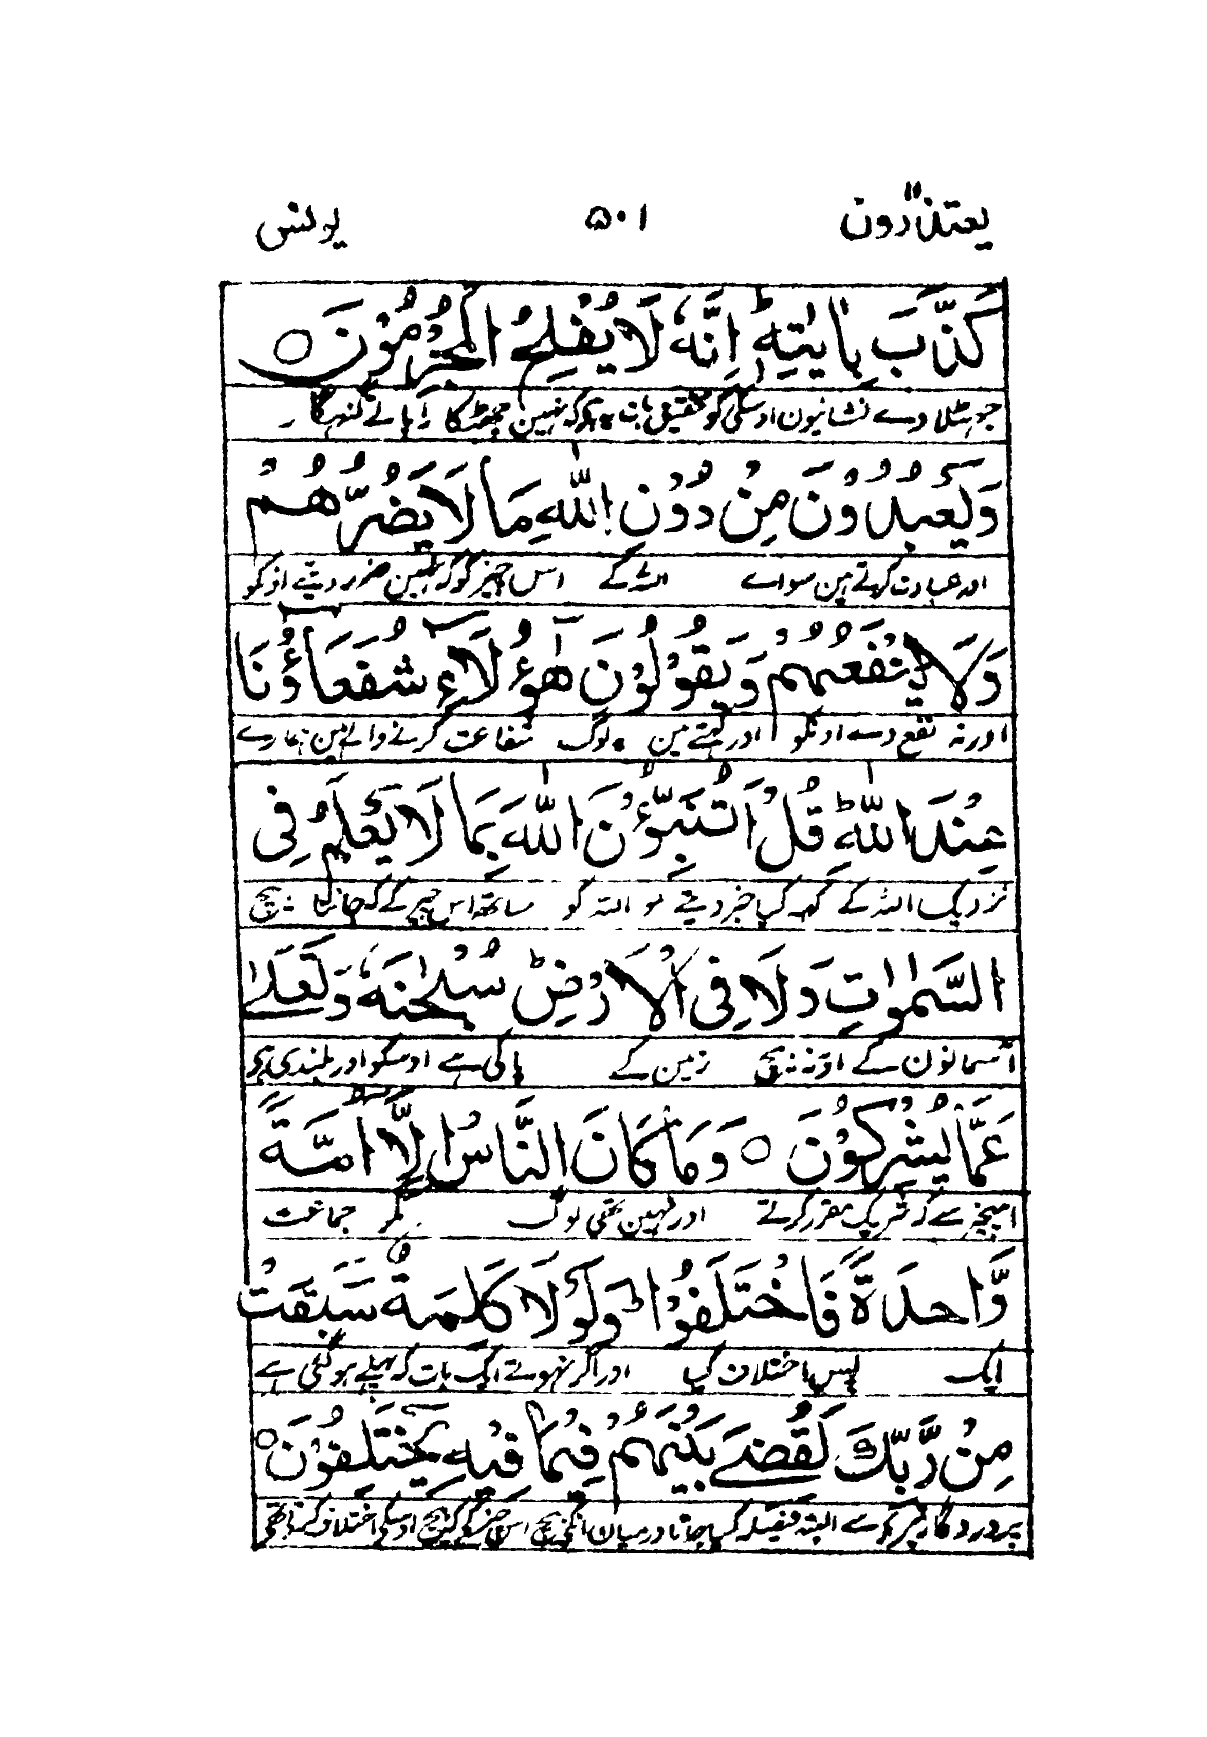 یعتذرون ۱۱ ۵۰۱ یونس
كَذَّبَ بِاٰيٰتِهٖؕ اِنَّهٗ لَا يُفْلِحُ الْمُجْرِمُوْنَ ○
جھٹلا دے نشانیون اوسکی کو تحقیق بات یہ ہے کہ نہین چھٹکارا پاتے گنہگار
وَيَعْبُدُوْنَ مِنْ دُوْنِ اللّٰهِ مَا لَا يَضُرُّهُمْ
اور عبادت کرتے ہین سواے اللہ کے اس چیز کو کہ نہین ضرر دیتے اونکو
وَلَا يَنْفَعُهُمْ وَيَقُوْلُوْنَ هٰٓؤُلَآءِ شُفَعَآؤُنَا
اور نہ نفع دے اونکو اور کہتے ہین یہ لوگ شفاعت کرنے والے ہین ہمارے
عِنْدَ اللّٰهِؕ قُلْ اَتُنَبِّـُٔوْنَ اللّٰهَ بِمَا لَا يَعْلَمُ فِى
نزدیک اللہ کے کہہ کیا خبر دیتے ہو اللہ کو ساتھ اس چیز کے کہ نہ جانتا بیچ
السَّمٰوٰتِ وَلَا فِى الْاَرْضِؕ سُبْحٰنَهٗ وَتَعٰلٰى
آسمانون کے اور نہ بیچ زمین کے پاکی ہے اوسکو اور بلندی ہے
عَمَّا يُشْرِكُوْنَ ○ وَمَا كَانَ النَّاسُ اِلَّاۤ اُمَّةً
اس چیز سے کہ شریک مقرر کرتے اور نہین تھی لوگ مگر جماعت
وَّاحِدَةً فَاخْتَلَفُوْاؕ وَلَوْلَا كَلِمَةٌ سَبَقَتْ
ایک پس اختلاف کیا اور اگر نہوتے ایک بات کہ پہلے ہو گئی ہے
مِنْ رَّبِّكَ لَقُضِىَ بَيْنَهُمْ فِيْمَا فِيْهِ يَخْتَلِفُوْنَ ○
پروردگار تیرے سے البتہ فیصلہ کیا جاتا درمیان انکے بیچ اس چیز کے کہ بیچ اوسکے اختلاف کرتے تھے